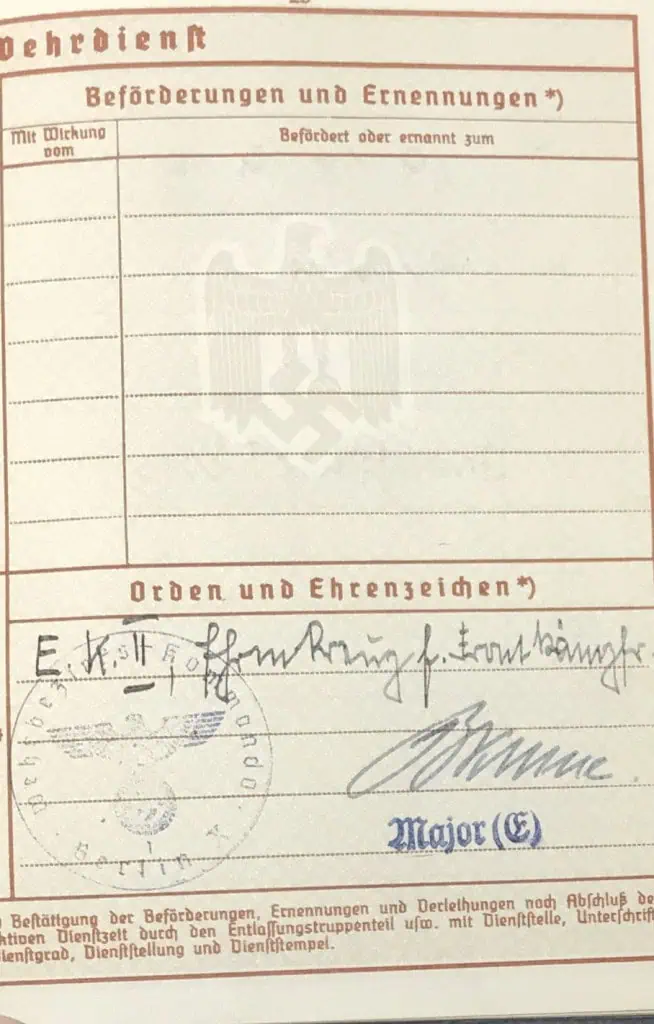 Wehrdienst
Beförderungen und Ernennungen *)
Mit Wirkung vom
Befördert oder ernannt zum
Orden und Ehrenzeichen *)
E. K. II, Ehrenkreuz f. Frontkämpfer.
Wehrbezirkskommando Berlin X
Major (E)
Bestätigung der Beförderungen, Ernennungen und Verleihungen nach Abschluß de
ktiven Dienstzeit durch den Entlassungstruppenteil usw. mit Dienststelle, Unterschrift
ienstgrad, Dienststellung und Dienststempel.